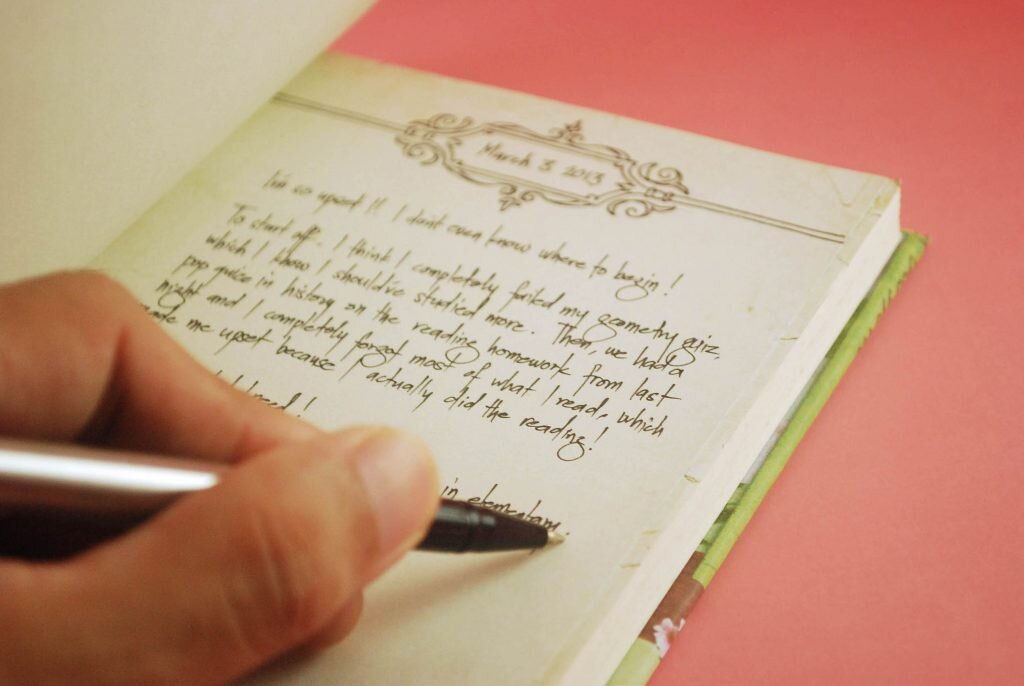 March 3 2013
I'm so upset!! I don't even know where to begin!
To start off.. I think I completely failed my geometry quiz,
which I know I should've studied more. Then, we had a
pop quize in history on the reading homework from last
night and I completely forgot most of what I read, which
made me upset because I actually did the reading!
in elementary.